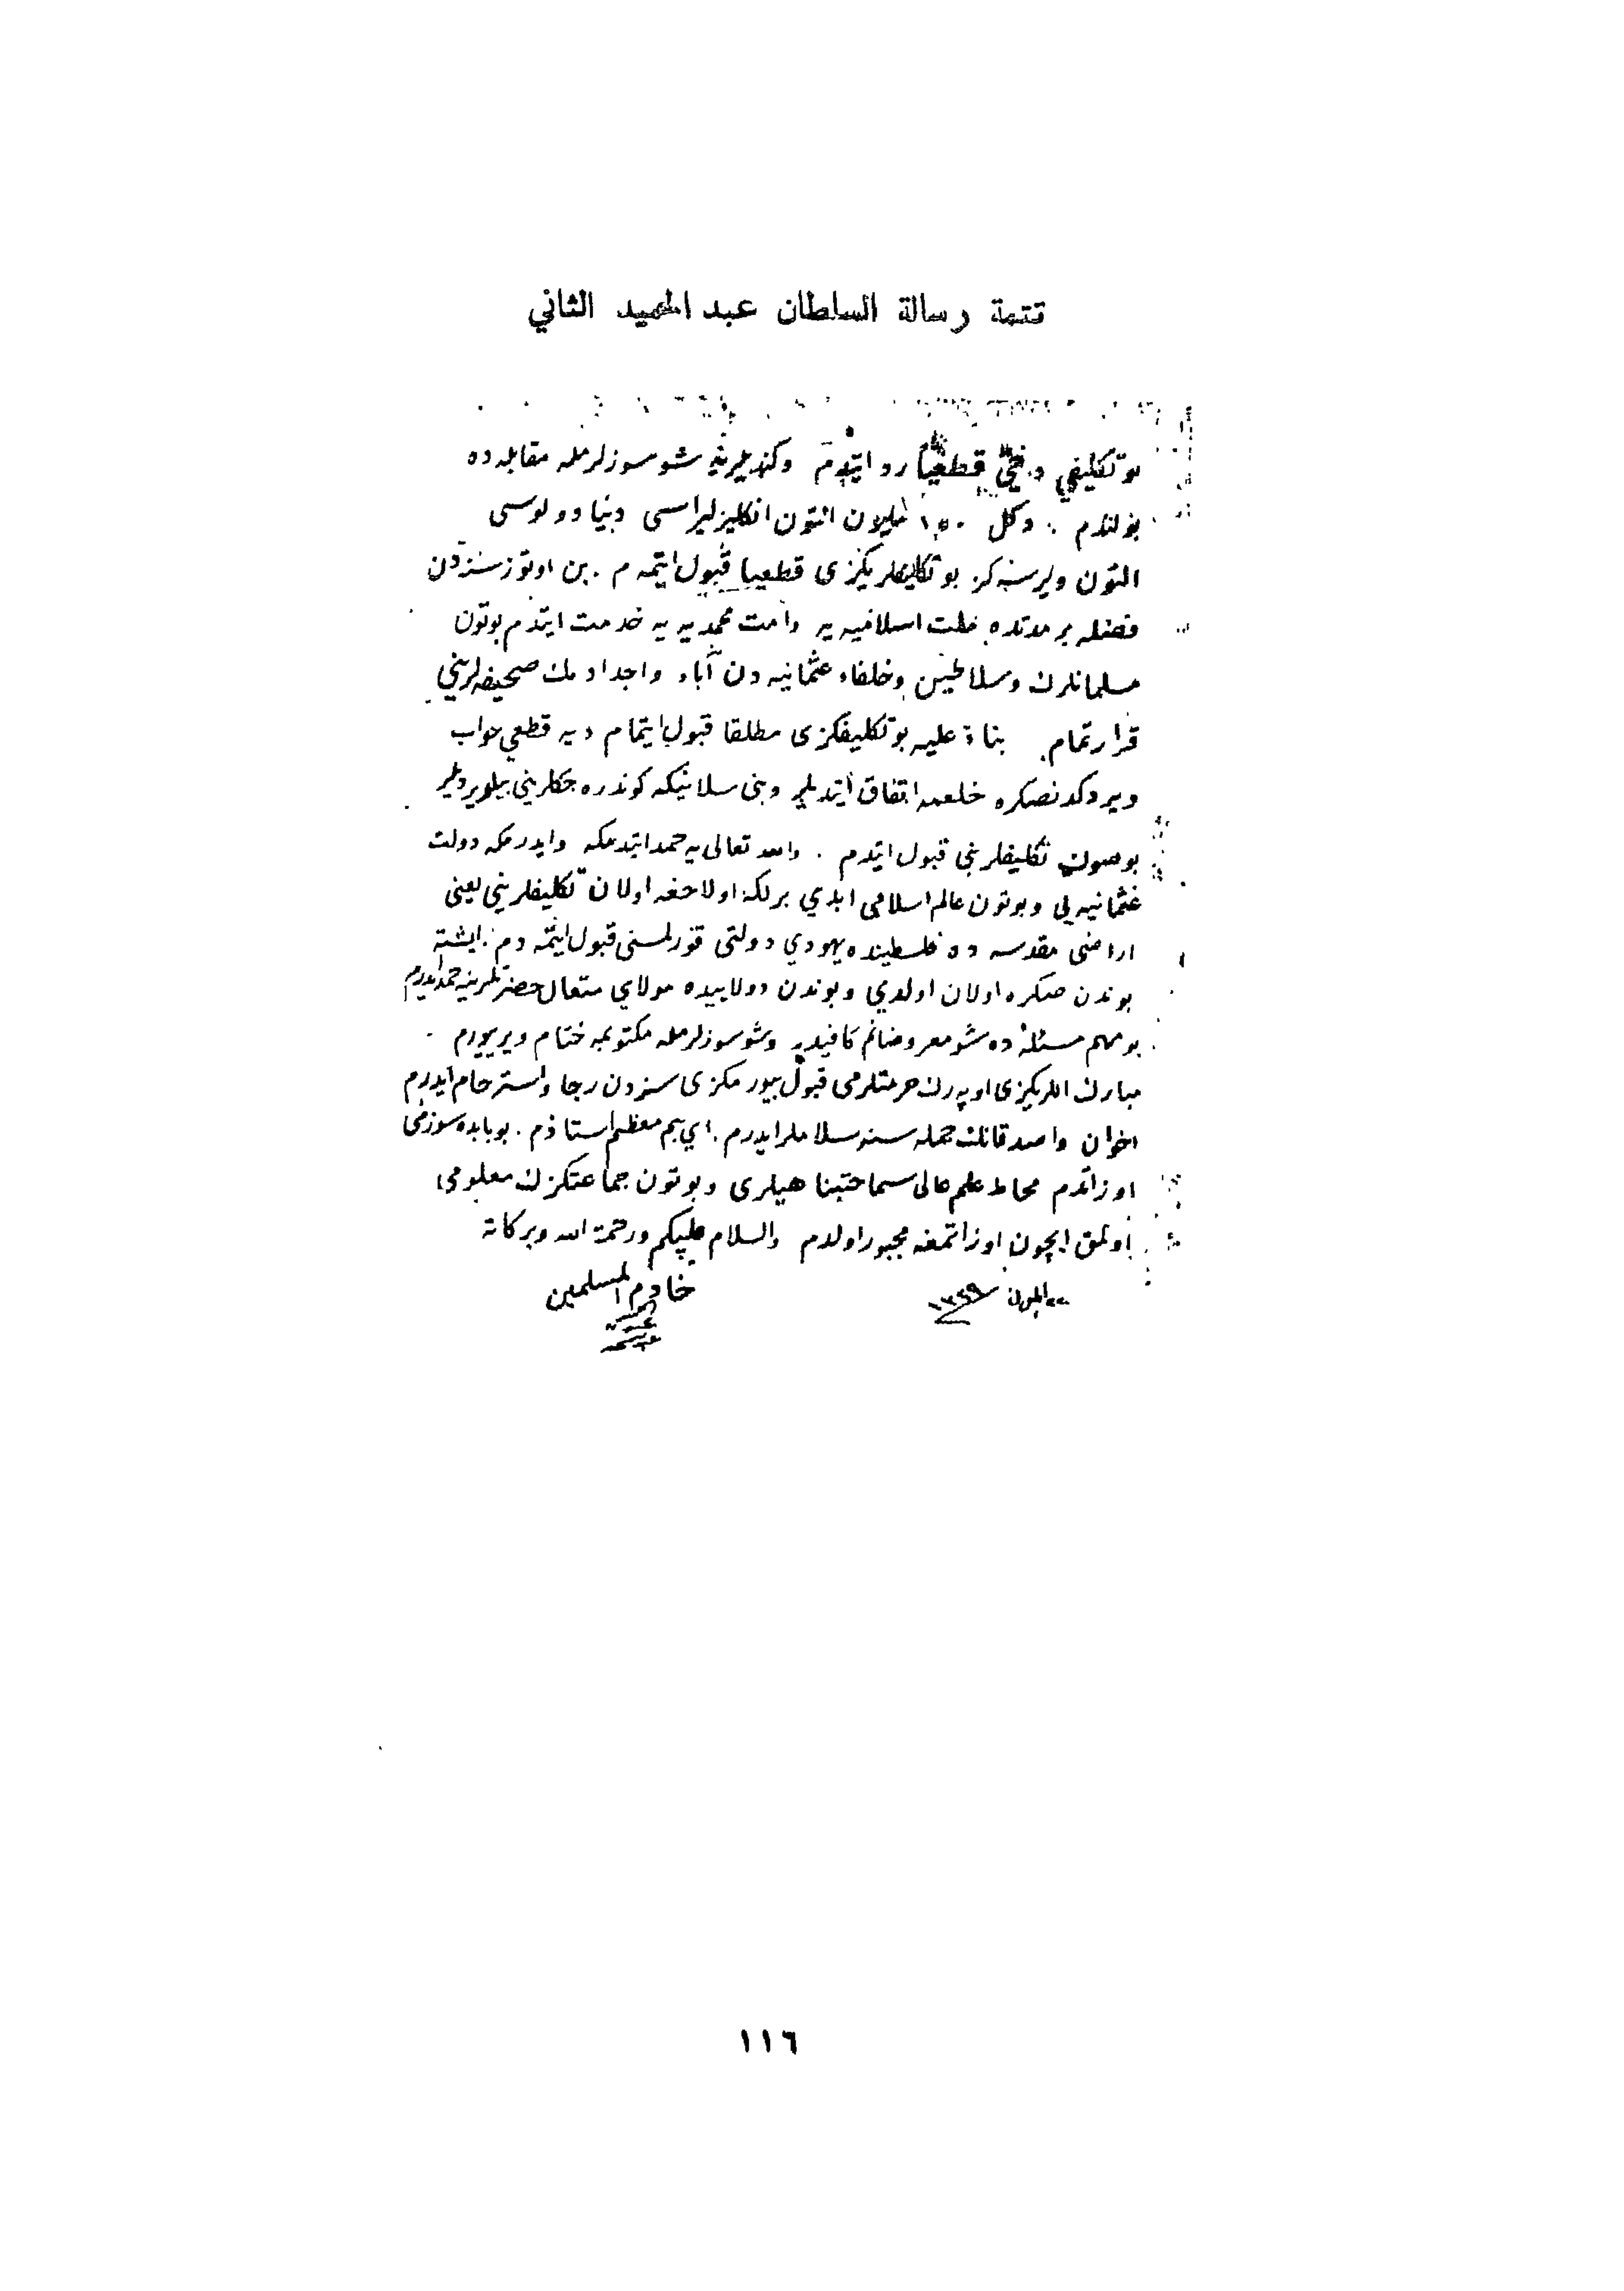 تتمة رسالة السلطان عبد الحميد الثاني
بو تكليفي دخي قطعيا رد ايتدم وكنديلرينه شو سوزلرمله مقابله ده
بولندم . دكل ١٥٠ مليون التون انكليز ليراسى دنيا دولوسى
التون ويرسه كز بو تكليفلريكزى قطعيا قبول ايتمه م . بن اوتوز سنه دن
فضله بر مدتده ملت اسلاميه يه وامت محمديه يه خدمت ايتدم بوتون
مسلمانلرك وسلاطين وخلفاء عثمانيه دن آباء واجدادمك صحيفه لريني
قرارتمام . بناءً عليه بو تكليفكزى مطلقا قبول ايتمام ديه قطعي جواب
ويردكدنصكره خلعمه اتفاق ايتديلر وبنى سلانيكه كوندره جكلريني بيلديرديلر
بو صوك تكليفلريني قبول ايتدم . والله تعالى يه حمد ايتدمكه وايدرمكه دولت
عثمانيه يى وبوتون عالم اسلامى ابدي بر لكه اولاجغه اولان تكليفلريني يعنى
اراضى مقدسه ده فلسطينده يهودي دولتى قورلمسنى قبول ايتمه دم . ايشته
بوندن صكره اولان اولدي وبوندن دولاييده مولاي متعال حضرتلرينه حمد ايدرم
بو مهم مسئله ده شو معروضاتم كافيدر وشو سوزلرمله مكتوبمه ختام ويرييورم .
مبارك اللريكزى اوپه رك حرمتلرمى قبول بيورمكزى سزدن رجا واسترحام ايدرم
اخوان واصدقانك جمله سنه سلاملر ايدرم . اي بنم معظم استاذم . بو بابده سوزمى
اوزاتدم محاط علم عالى سماحتپناهيلرى وبوتون جماعتكزك معلومى
اولمق ايچون اوزاتمغه مجبور اولدم والسلام عليكم ورحمة الله وبركاته
٢٢ ايلول ١٣٢٩ خادم المسلمين
١١٦